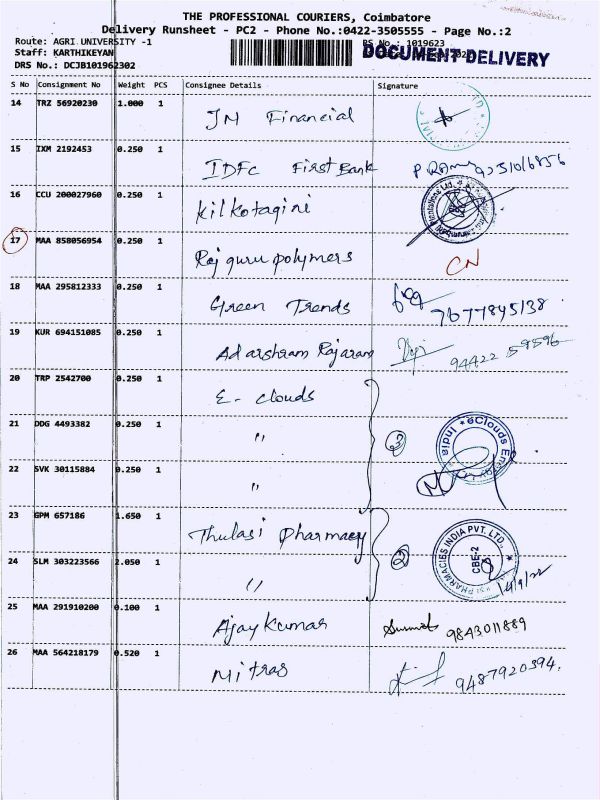 THE PROFESSIONAL COURIERS, Coimbatore
Delivery Runsheet - PC2 - Phone No.:0422-3505555 - Page No.:2
Route: AGRI UNIVERSITY -1 RS No.: 1019623
Staff: KARTHIKEYAN DOCUMENT DELIVERY
DRS No.: DCJB101962302
S No Consignment No Weight PCS Consignee Details Signature
14 TRZ 56920230 1.000 1 JM Financial
15 IXM 2192453 0.250 1 IDFC First Bank
16 CCU 200027960 0.250 1 Kilkotagiri
17 MAA 858056954 0.250 1 Rajguru polymers CN
18 MAA 295812333 0.250 1 Green Trends 7677845138
19 KUR 694151085 0.250 1 Adarshram Rajaram 94422 59596
20 TRP 2542700 0.250 1 E- clouds
21 DDG 4493382 0.250 1 " 3 eClouds Energy India
22 SVK 30115884 0.250 1 "
23 GPM 657186 1.650 1 Thulasi pharmacy
24 SLM 303223566 2.050 1 " 2 PHARMACIES INDIA PVT. LTD. CBE-2
25 MAA 291910200 0.100 1 Ajay Kumar 9843011889
26 MAA 564218179 0.520 1 Mitras 9487920394.